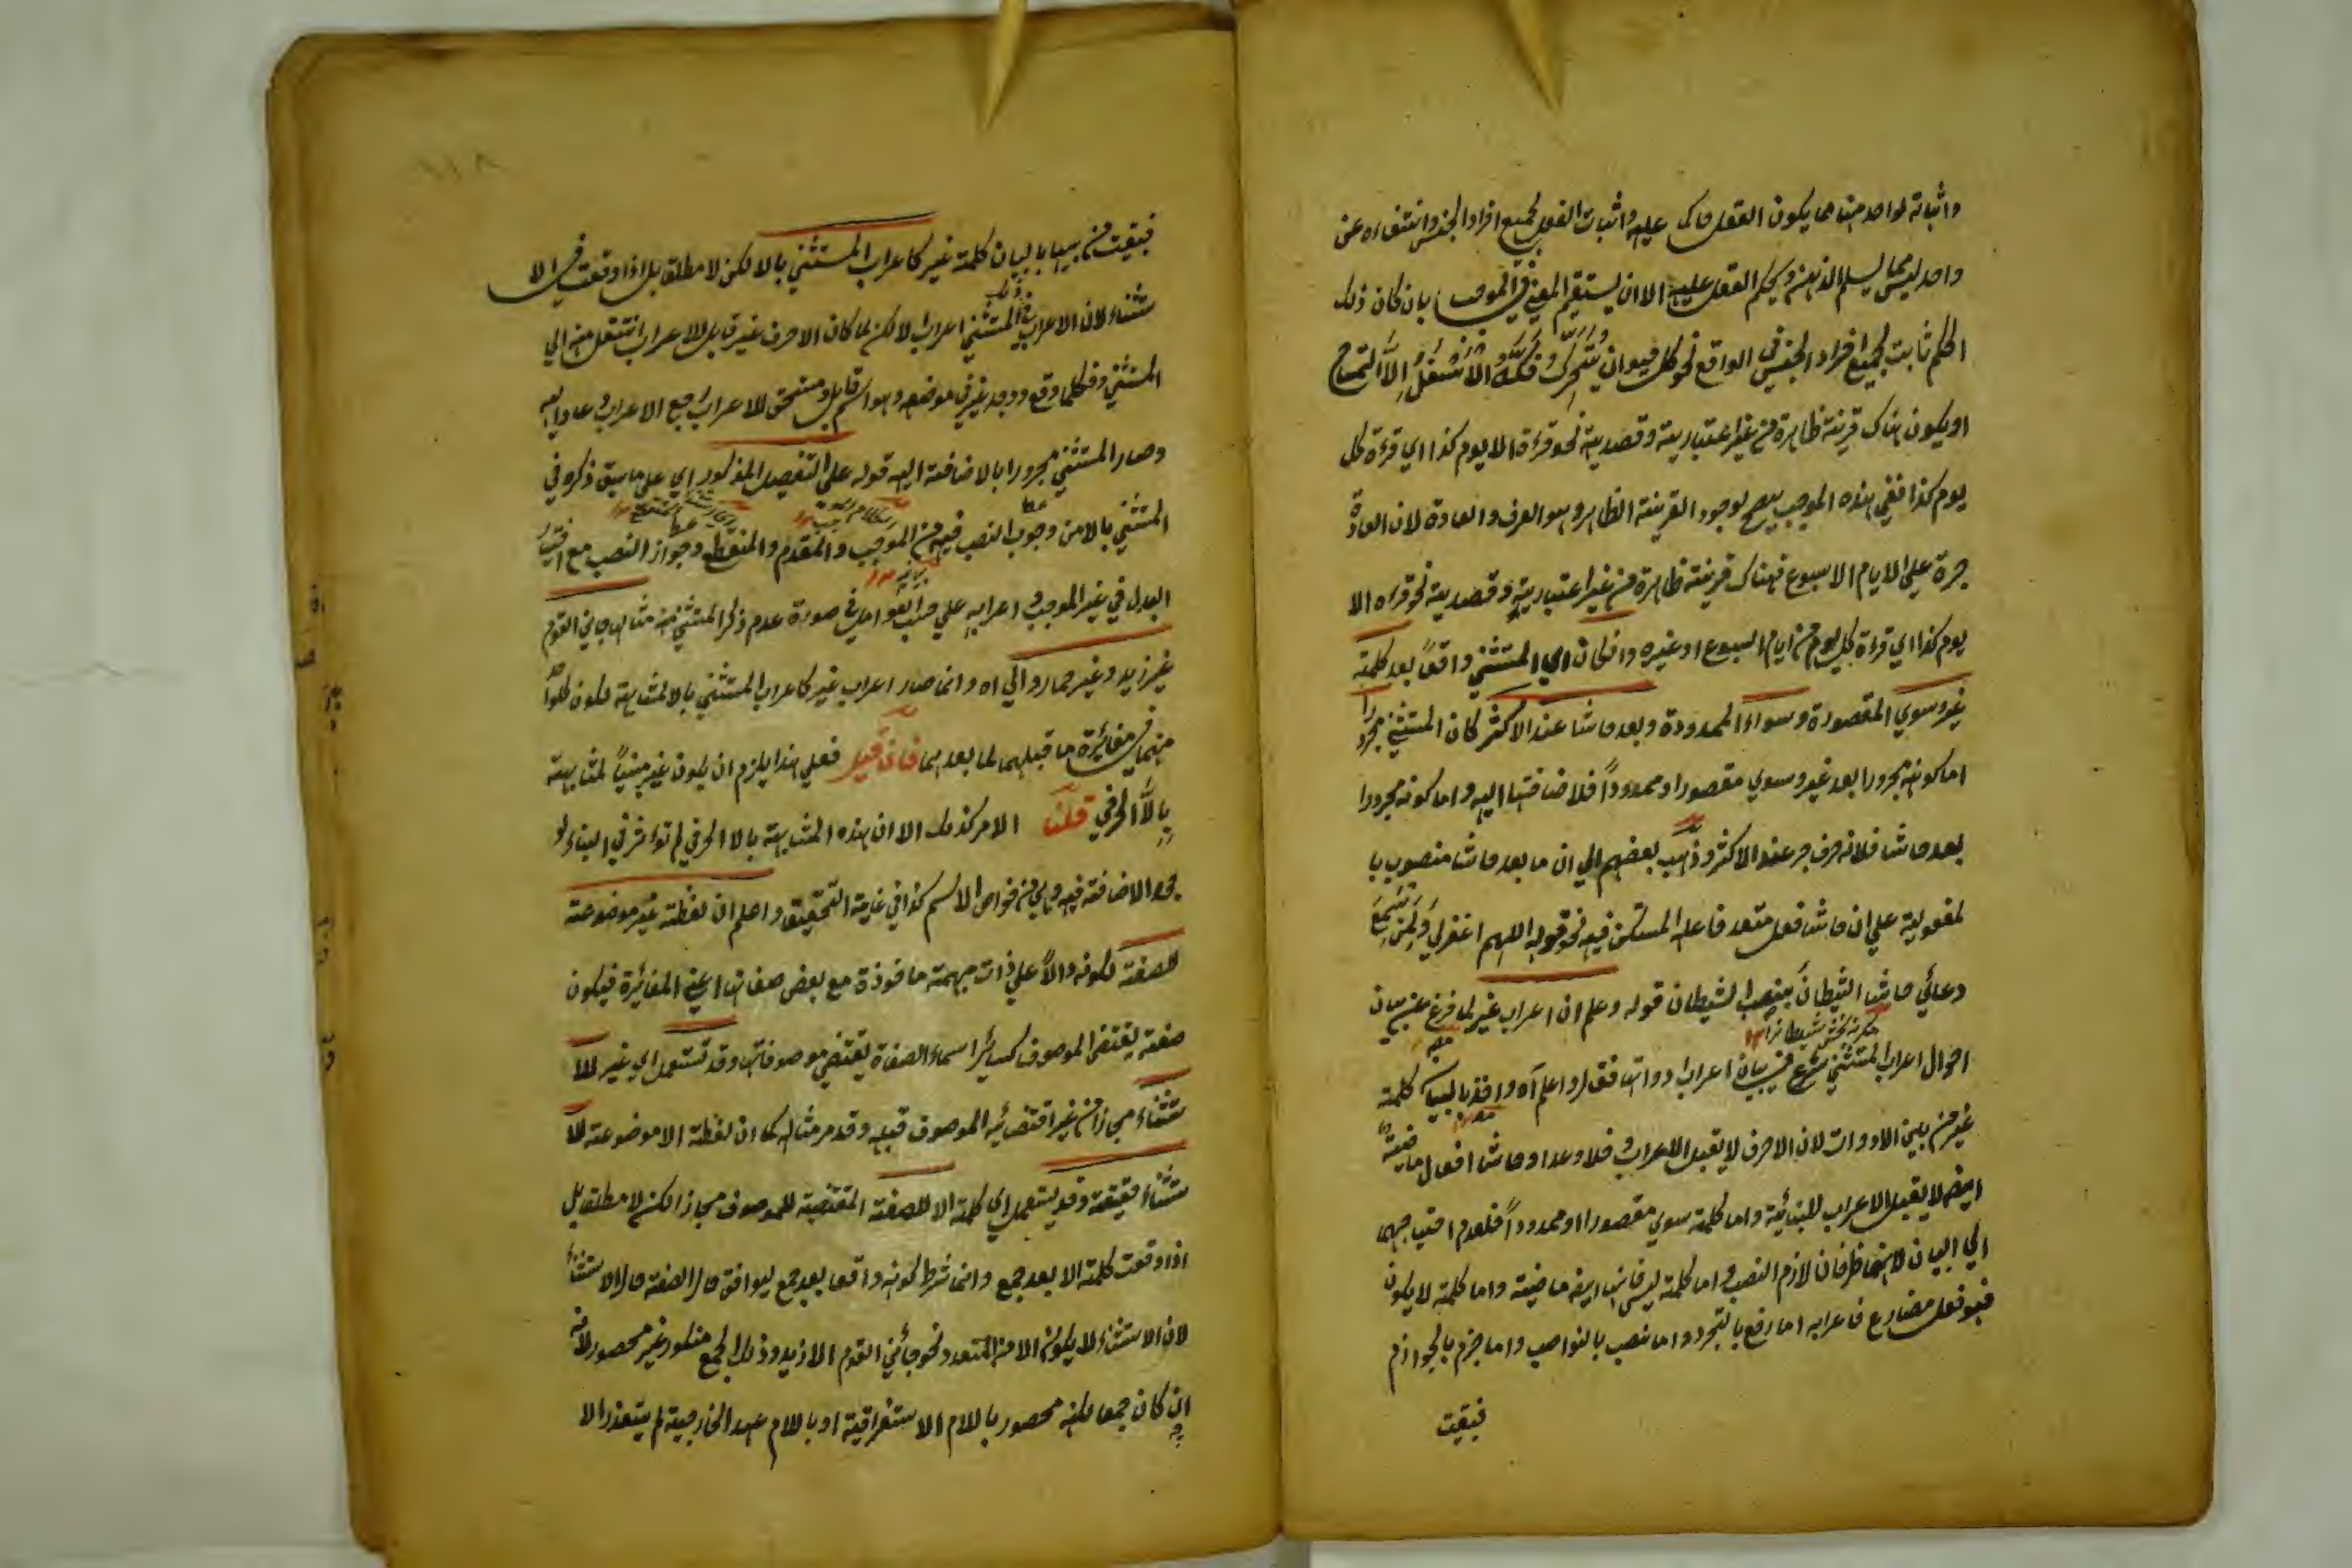 واثباته لواحد منها مما يكون العقل حاكما عليه واثبات الفعل لجميع افراد الجنس وانتفاءه عن
واحد ليس مما يسلم الذهن ويحكم العقل عليه الا ان يستقيم المعنى في الموجب بان كان ذلك
الحكم ثابت لجميع افراد الجنس في الواقع نحو كل حيوان يتحرك فكه الاسفل الا التمساح
او يكون هناك قرينة ظاهرة من غير اعتبارية وقصدية نحو قرءة الا يوم كذا اي قرءة كل
يوم كذا ففي هذه الموجب يصح لوجود القرينة الظاهر وهو العرف والعادة لان العادة
جرة علي الايام الاسبوع فهناك قرينة ظاهرة من غير اعتبارية وقصدية نحو قراءه الا
يوم كذا اي قرءة كل يوم من ايام السبوع او غيره وان كان اي المستثني واقعاً بعد كلمة
غير وسوي المقصورة وسواء الممدودة وبعد حاشا عند الاكثر كان المستثني مجرورا
اما كونه مجرورا بعد غير وسوي مقصورا وممدوداً فلاضافتها اليه واما كونه مجرورا
بعد حاشا فلانه حرف جر عند الاكثر وذهب بعضهم الي ان ما بعد حاشا منصوب با
لمفعولية علي ان حاشا فعل متعد فاعله المستكن فيه نحو قوله اللهم اغفرلي ولمن سمع
دعائي حاشا الشيطان بنصب الشيطان قوله وعلم ان اعراب غير لما فرغ عن بيان
احوال اعراب المستثني شرع في بيان اعراب دواتها فقال واعلم آه واخذ بالبيان كلمة
غير من بين الادوات لان الاحرف لا يقبل الاعراب فلا وعدا وحاشا افعال ماضية
ايضا لا يقبل الاعراب للبنائية واما كلمة سوي مقصورا او ممدوداً فلعدم احتياجهما
الي البيان لانهما ظرفان لازم النصب واما كلمة ليس فانها ايضا ماضية واما كلمة لا يكون
فهو فعل مضارع فاعرابه اما رفع بالتجرد واما نصب بالنواصب واما جزم بالجوازم
فبقيت
١١٨
فبقيت من بينها بالبيان كلمة غير كاعراب المستثني بالا لكن لا مطلقا بل اذا وقعت في الا
ستثناء لان الاعراب في المستثني اعراب الا لكن لما كان الا حرف غير قابل للاعراب انتقل منه الي
المستثني وفكلما وقع ووجد غير في موضعه وهو اسم قابل ومستحق للاعراب رجع الاعراب وعاد اليه
وصار المستثني مجرورا بالاضافة اليه قوله علي التفصيل المذكور اي علي ما سبق ذكره في
المستثني بالا من وجوب النصب فيه من الموجب والمقدم والمنقطع وجواز النصب مع اختيار
البدل في غير الموجب واعرابه علي حسب العوامل في صورة عدم ذكر المستثني منه مثالها جاني القوم
غير زيد وغير حمار والي اه وانما صار اعراب غير كاعراب المستثني بالا لمشابهة لكون كل واحد
منهما في مغائرة ما قبلهما لما بعدهما فان قيل فعلي هذا يلزم ان يكون غير مبنياً لمشابهة
بالاّ الحرفي قلنا الامر كذلك الا ان هذه المشابهة بالا الحرفي لم تؤثر في البناء لو
جود الاضافة فيه وهي من خواص الاسم كذا في غاية التحقيق واعلم ان لفظة غير موضوعة
للصفة لكونه دالاً علي ذات مبهمة ماخوذة مع بعض صفاتها اعني المغائرة فيكون
صفة يقتضي الموصوف كسائر اسماء الصفاة يقتضي موصوفاتها وقد تستعمل اي غير للا
ستثناء مجازا من غير اقتضائه الموصوف قبله وقد مر مثاله كما ان لفظة الا موضوعة للا
ستثناء حقيقة وقد يستعمل اي كلمة الا للصفة المقتضية للموصوف مجازا لكن لا مطلقا بل
اذا وقعت كلمة الا بعد جمع وانما شرط كونه واقعا بعد جمع ليوافق حال الصفة حال الاستثناء
لان الاستثناء لا يكون الا من المتعدد نحو جائني القوم الا زيد وذلك الجمع منكور غير محصور لانه
ان كان جمعا لكنه محصور باللام الاستغراقية او باللام عهد الخارجية لم يتعذر الا